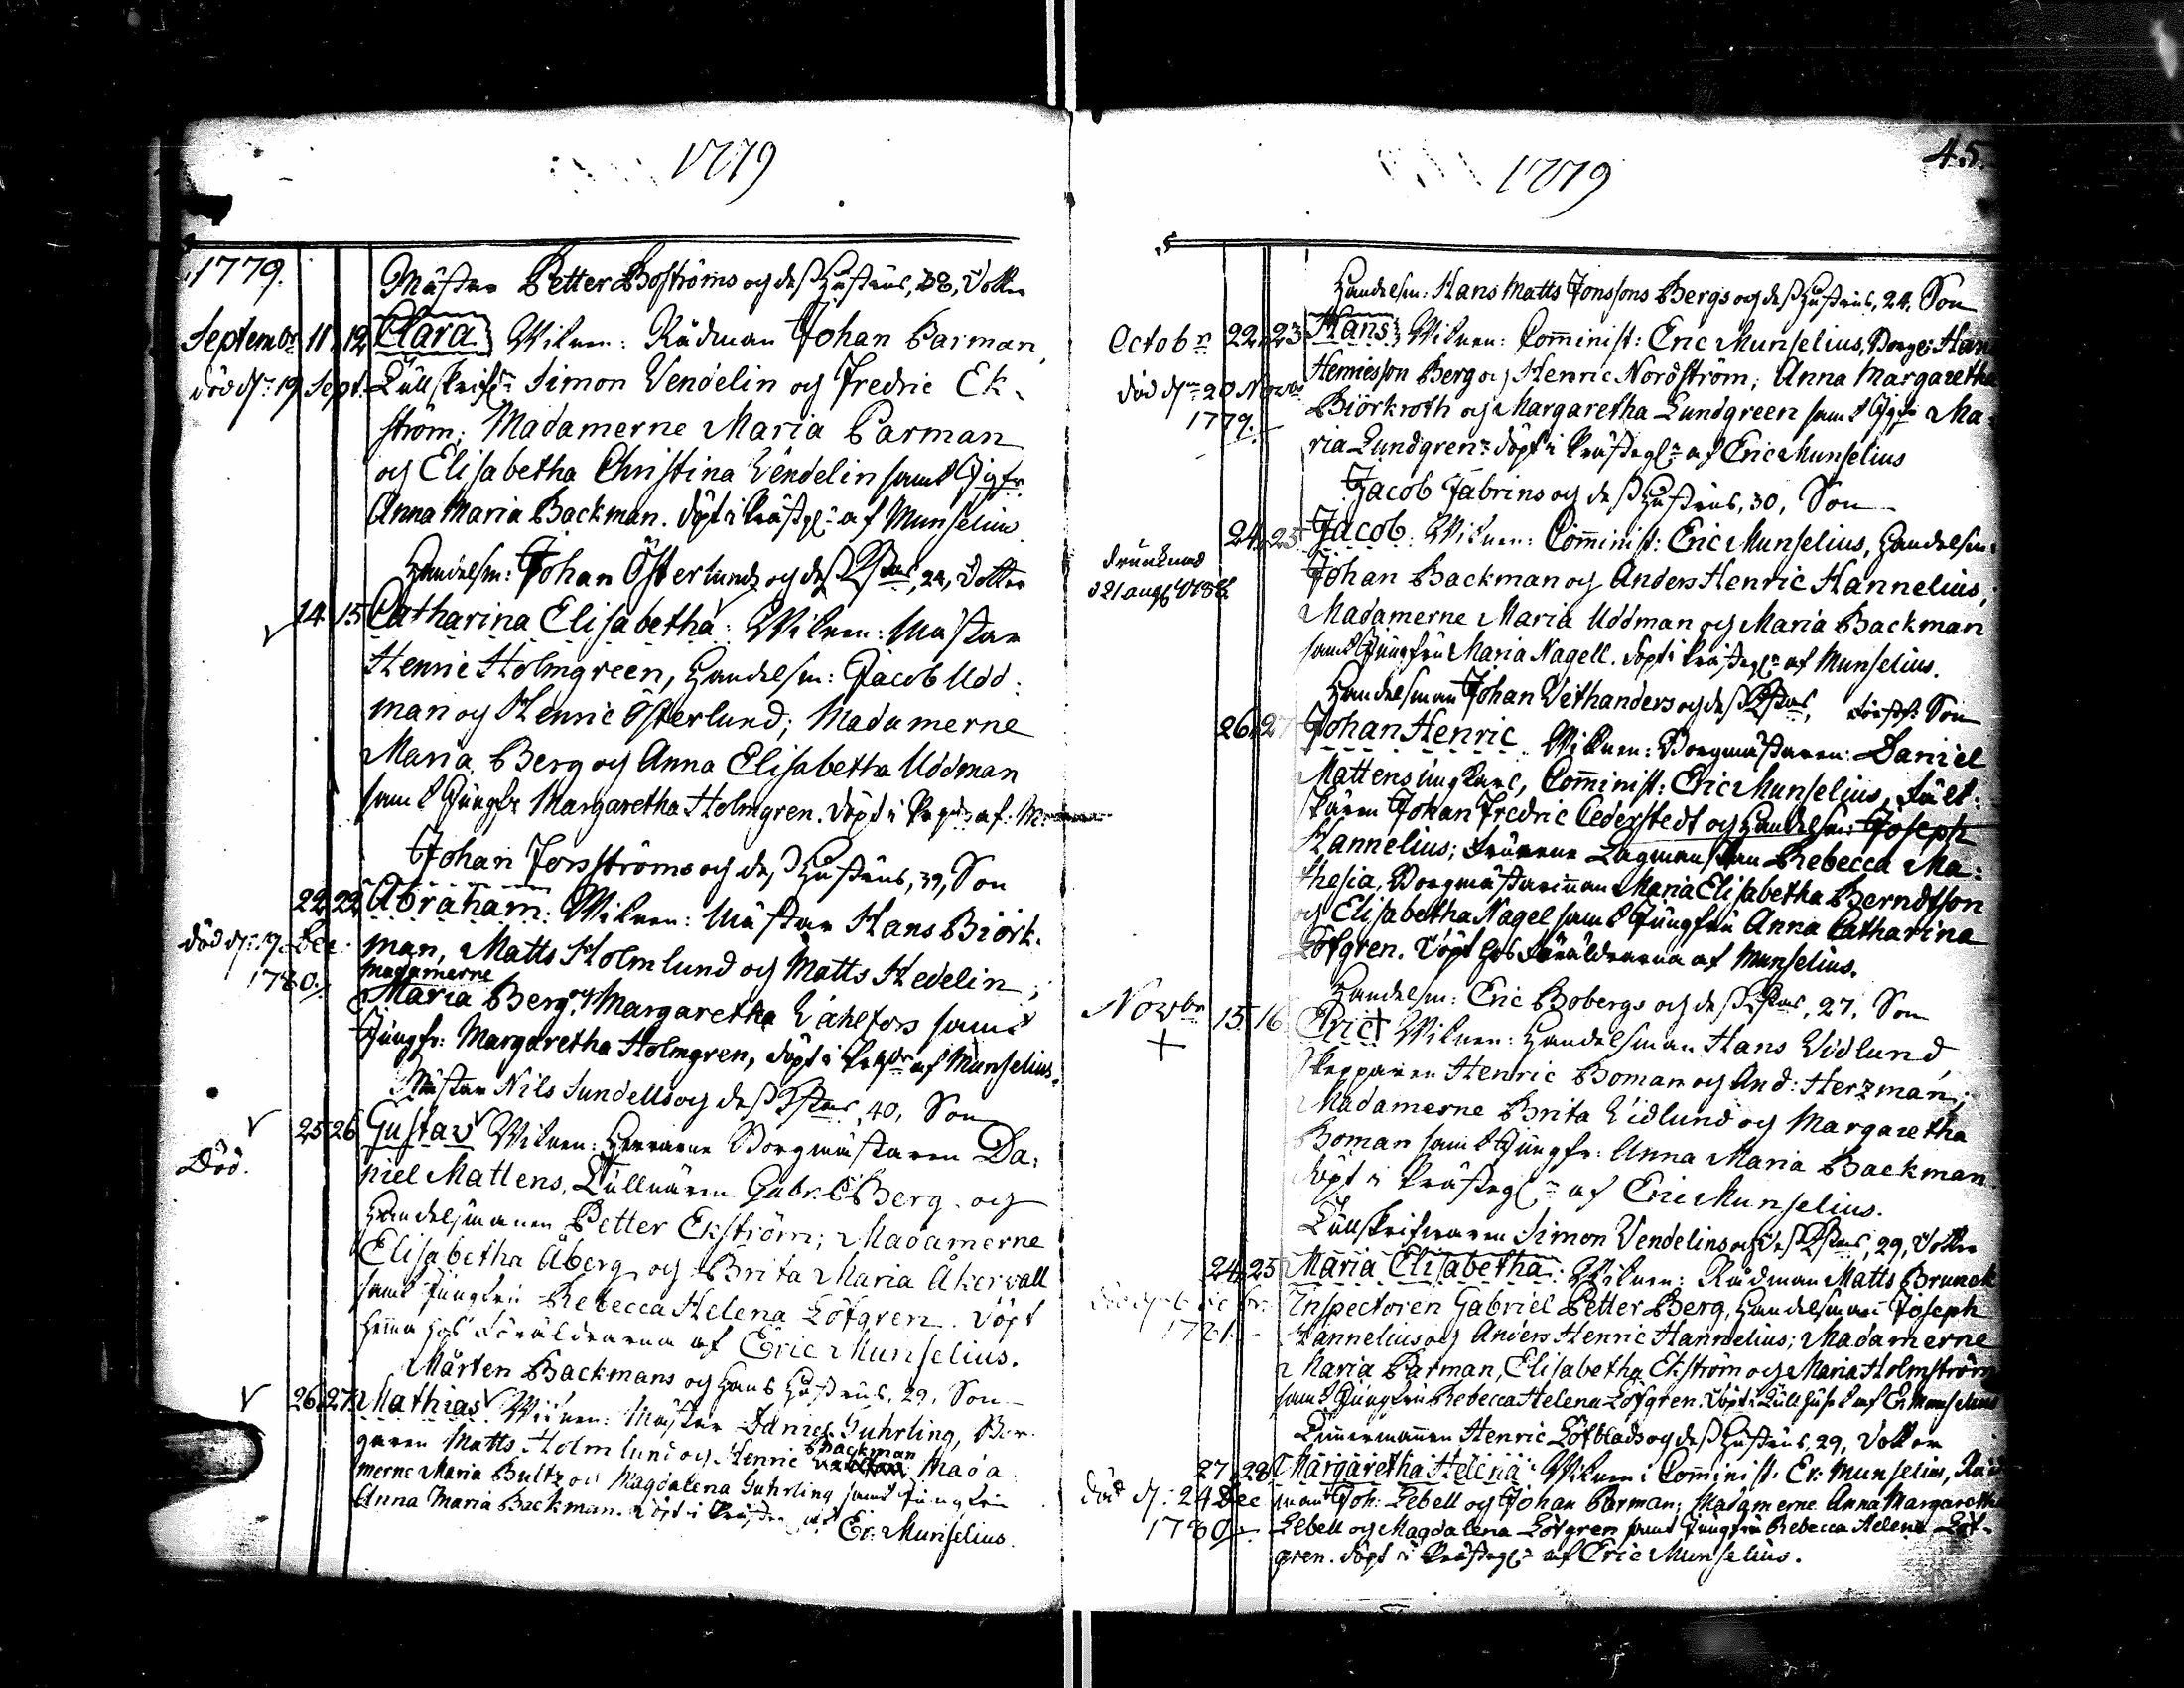 1779
1779.
Mästar Petter Boströms och dess Hustrus, 38, Dotter
Septembr 11. 12 Clara. Witnen: Rådman Johan Parman,
död dn 19 Sept. Tullskrifn Simon Vendelin och Fredric Ek-
ström; Madamerne Maria Parman
och Elisabetha Christina Vendelin samt Jgfr
Anna Maria Backman. döpt i Prästg:n af Munselius
Handelsm: Johan Österlunds och dess H:strus, 24, Dotter
14 15 Catharina Elisabetha: Witnen: Mästar
Henric Holmgreen, Handelsm: Jacob Udd:
man och Henric Österlund; Madamerne
Maria Berg och Anna Elisabetha Uddman
samt Jungfr Margaretha Holmgren. döpt i af
Johan Forsströms och dess Hustrus, 39, Son
22 22 Abraham: Witnen: Mästar Hans Biörk-
död dn 17 Dec man, Matts Holmlund och Matts Hedelin;
madamerne
1780. Maria Berg och Margaretha Vahlfors samt
Jungfr: Margaretha Holmgren, döpt i af Munselius.
Mästar Nils Sundells och dess H:strus, 40, Son
25 26 Gustav Witnen: Herrarne Borgmästaren Da:
Död. niel Mattens, Gabr: Berg och
Handelsmannen Petter Ekström; Madamerne
Elisabetha Åberg och Brita Maria Åkervall
samt Jungfru Rebecca Helena Löfgren. Döpt
hemma hos Föräldrarna af Eric Munselius.
Mårten Backmans och Hans Hustrus, 29, Son
26 27 Mathias Witnen: Mästar Daniel Guhrling, Bor-
Backman
garen Matts Holmlund och Henric Mada
merne Maria Bultz och Magdalena Guhrling samt Jungfru
Anna Maria Backman. Döpt i af
Er: Munselius.
45.
1779
Handelsm: Hans Matts Jonssons Bergs och dess Hustrus, 24, Son
Octobr 22 23 Hans Witnen: Comminist: Eric Munselius, Borg: Han
död dn 20 Novbr Henricsson Berg och Henric Nordström; Anna Margaretha
1779. Biörkroth och Margaretha Lundgreen samt Jgfr Ma-
ria Lundgren. döpt i Prästeg:n af Eric Munselius
Jacob Fabrins och dess Hustrus, 30, Son
24 25 Jacob. Witnen: Comminist: Eric Munselius, Handelsm:
drunknad
d 21 aug Johan Backman och Anders Henric Hannelius;
Madamerne Maria Uddman och Maria Backman
samt Jungfru Maria Nagell. döpt i Prästeg:n af Munselius.
Handelsman Johan Vethanders och dess H:strus, Son
26 27 Johan Henric. Witnen: Borgmästaren: Daniel
Mattens Comminist: Eric Munselius, Fält-
skären Johan Fredric Cederstedt och Handelsm: Joseph
Hannelius; Fruarne Lagmanskan Rebecca Ma:
thesia, Borgmästarinnan Maria Elisabetha Berndtson
och Elisabetha Nagel samt Jungfru Anna Catharina
Löfgren. Döpt hos Föräldrarna af Munselius.
Handelsm: Eric Bobergs och dess H:strus, 27, Son
Novbr 15 16 Eric Witnen: Handelsman Hans Vidlund,
+ Skepparen Henric Boman och And: Herzman;
Madamerne Brita Vidlund och Margaretha
Boman samt Jungfr: Anna Maria Backman
döpt i Prästeg:n af Eric Munselius.
Tullskrifvaren Simon Vendelins och dess H:strus, 29, Dotter
24 25 Maria Elisabetha: Witnen: Rådman Matts Brunck
Inspectoren Gabriel Petter Berg, Handelsman Joseph
1781. Hannelius och Anders Henric Hannelius; Madamerne
Maria Parman, Elisabetha Ekström och Maria Holmström
samt Jungfru Rebecca Helena Löfgren. Döpt i Tullhuset af Er: Munselius
Timmermannen Henric Löfblads och dess Hustrus, 29, Dotter
27 28 Margaretha Helena. Witnen: Comminist: Er: Munselius, Råd
död dn: 24 Dec man Joh: Lebell och Johan Parman; Madamerne Anna Margaretha
1780. Lebell och Magdalena Löfgren samt Jungfru Rebecca Helena Löf-
gren. döpt i Prästeg:n af Eric Munselius.